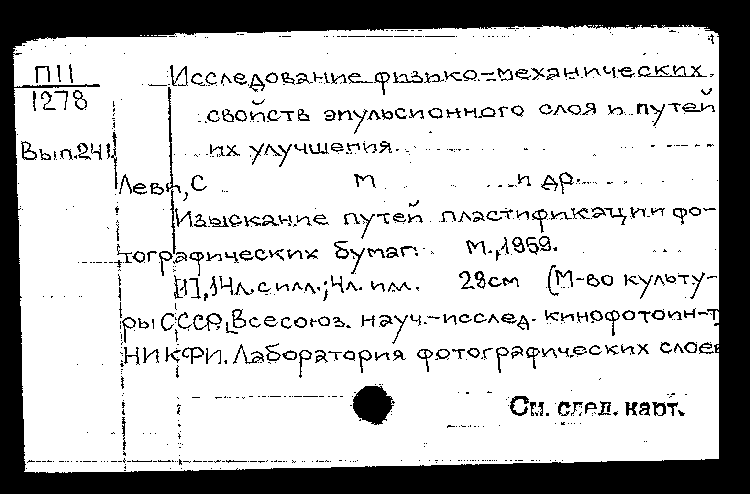 П11
1278
Вып.241
Исследование физико-механических
свойств эпульсионного слоя и путей
их улучшения.
Леви, С М и др.
Изыскание путей пластификации фо-
тографических бумаг. М., 1969.
[1], 14л. с илл.; 4л. илл. 28см (М-во культу-
ры СССР, Всесоюз. науч.-исслед. кинофотоин-т
НИКФИ. Лаборатория фотографических слоев
См. след. карт.